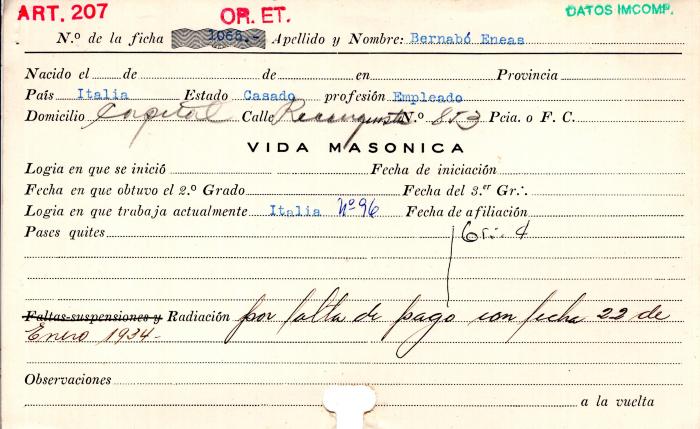 ART. 207 OR. ET. DATOS IMCOMP.
N.º de la ficha 1065.- Apellido y Nombre: Bernabó Eneas
Nacido el de de en Provincia
País Italia Estado Casado profesión Empleado
Domicilio Capital Calle Reconquista N.º 853 Pcia. o F. C.
VIDA MASONICA
Logia en que se inició Fecha de iniciación
Fecha en que obtuvo el 2.º Grado Fecha del 3.er Gr.·.
Logia en que trabaja actualmente Italia Nº 96 Fecha de afiliación
Pases quites Gr.·. 4
Faltas-suspensiones y Radiación por falta de pago con fecha 22 de
Enero 1934-
Observaciones
a la vuelta